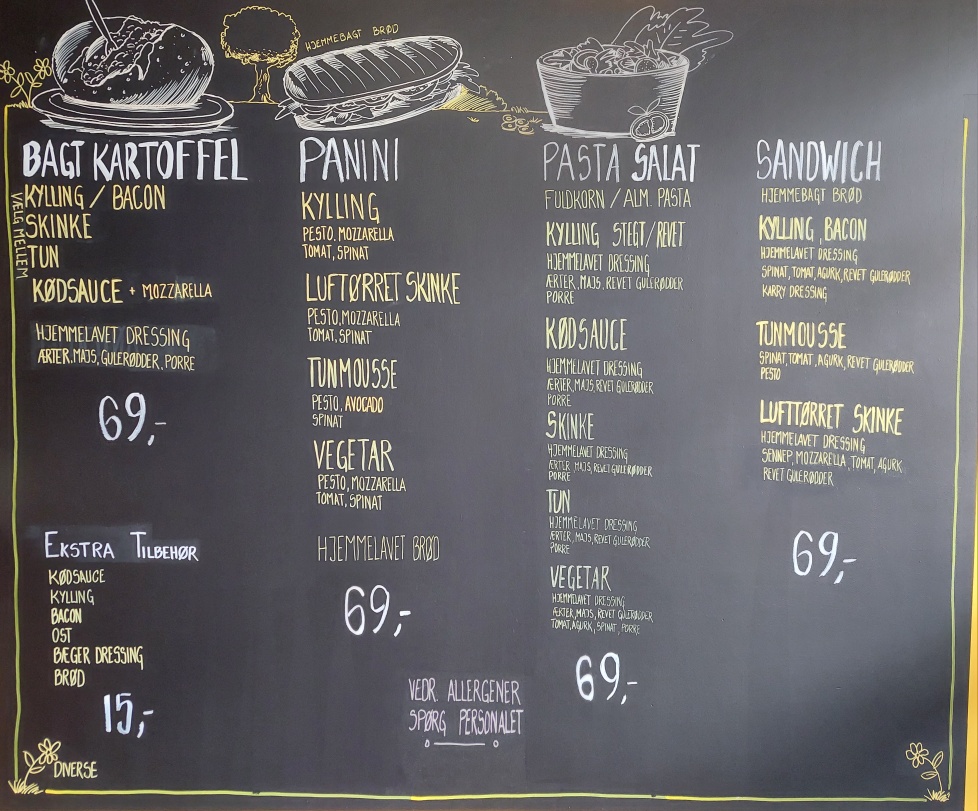 BAGT KARTOFFEL
VÆLG MELLEM
KYLLING / BACON
SKINKE
TUN
KØDSAUCE + MOZZARELLA
HJEMMELAVET DRESSING
ÆRTER, MAJS, GULERØDDER, PORRE
69,-
EKSTRA TILBEHØR
KØDSAUCE
KYLLING
BACON
OST
BÆGER DRESSING
BRØD
15,-
DIVERSE
HJEMMEBAGT BRØD
PANINI
KYLLING
PESTO, MOZZARELLA
TOMAT, SPINAT
LUFTØRRET SKINKE
PESTO, MOZZARELLA
TOMAT, SPINAT
TUNMOUSSE
PESTO, AVOCADO
SPINAT
VEGETAR
PESTO, MOZZARELLA
TOMAT, SPINAT
HJEMMELAVET BRØD
69,-
VEDR. ALLERGENER
SPØRG PERSONALET
PASTA SALAT
FULDKORN / ALM. PASTA
KYLLING STEGT/REVET
HJEMMELAVET DRESSING
ÆRTER, MAJS, REVET GULERØDDER
PORRE
KØDSAUCE
HJEMMELAVET DRESSING
ÆRTER, MAJS, REVET GULERØDDER
PORRE
SKINKE
HJEMMELAVET DRESSING
ÆRTER, MAJS, REVET GULERØDDER
PORRE
TUN
HJEMMELAVET DRESSING
ÆRTER, MAJS, REVET GULERØDDER
PORRE
VEGETAR
HJEMMELAVET DRESSING
ÆRTER, MAJS, REVET GULERØDDER
TOMAT, AGURK, SPINAT, PORRE
69,-
SANDWICH
HJEMMEBAGT BRØD
KYLLING, BACON
HJEMMELAVET DRESSING
SPINAT, TOMAT, AGURK, REVET GULERØDDER
KARRY DRESSING
TUNMOUSSE
SPINAT, TOMAT, AGURK, REVET GULERØDDER
PESTO
LUFTTØRRET SKINKE
HJEMMELAVET DRESSING
SENNEP, MOZZARELLA, TOMAT, AGURK
REVET GULERØDDER
69,-